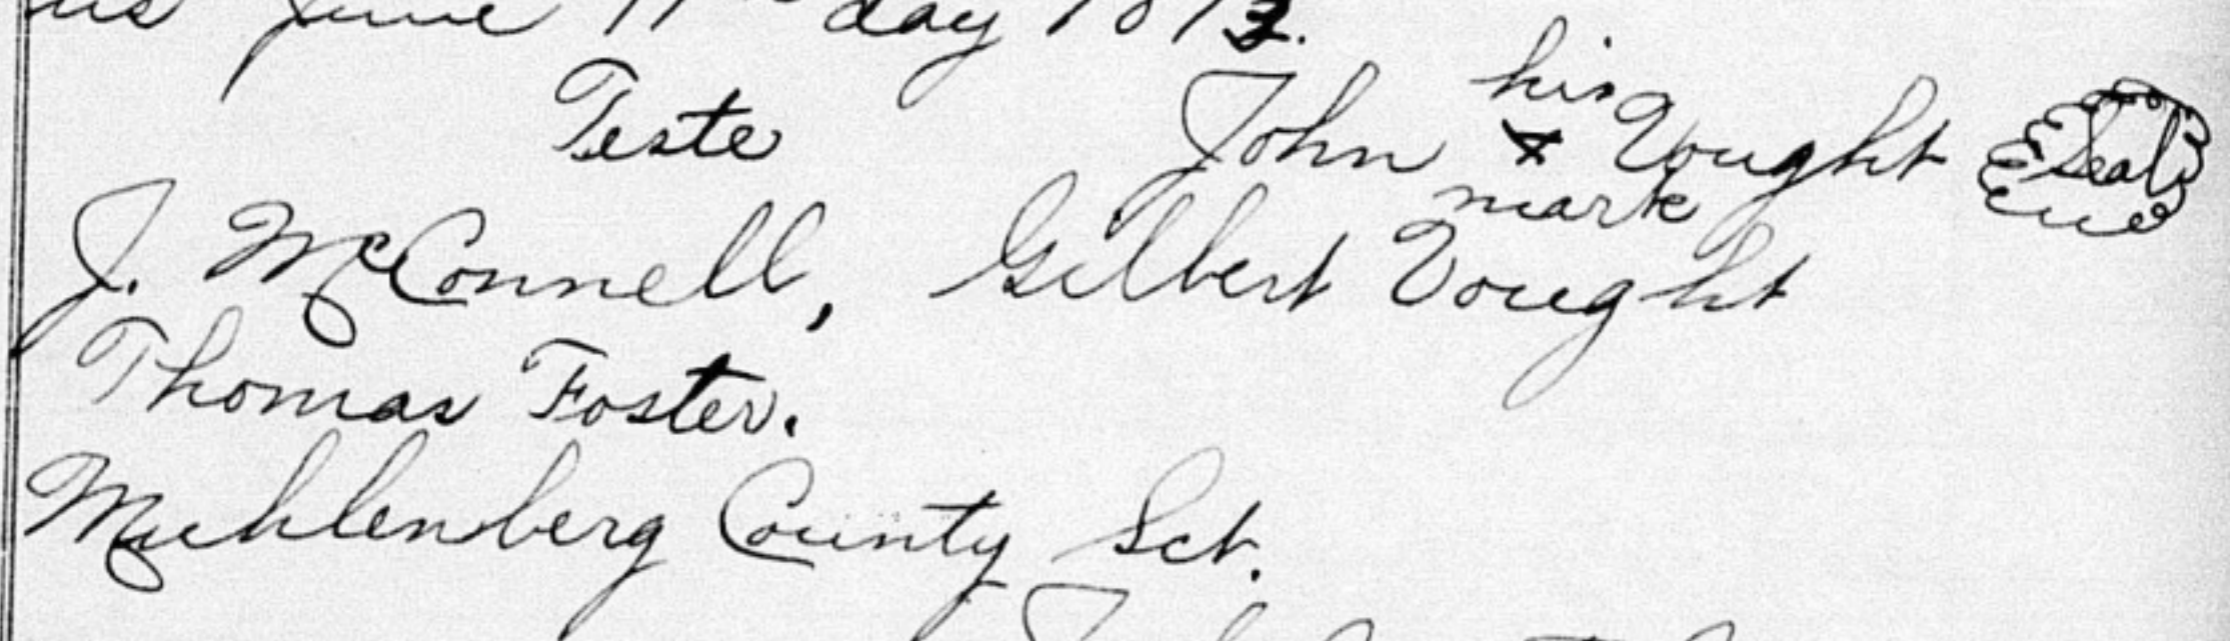 June 11th day 1813.
his
Teste John x Vought Seal
mark
J. McConnell, Gilbert Vought
Thomas Foster.
Muhlenberg County Sct.